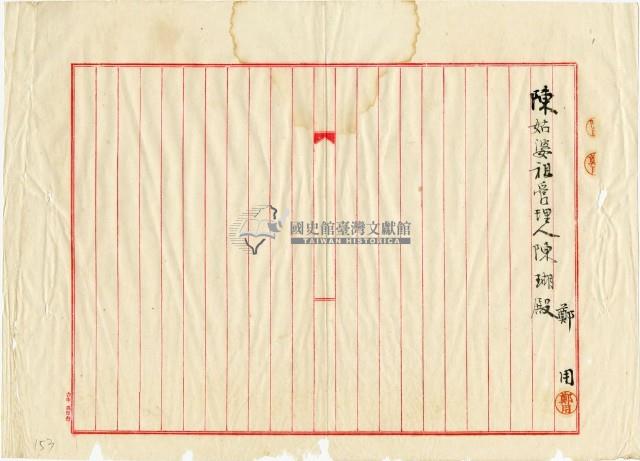 鄭用
陳姑婆祖管理人陳瑚殿
鄭用
國史館臺灣文獻館
TAIWAN HISTORICA
153